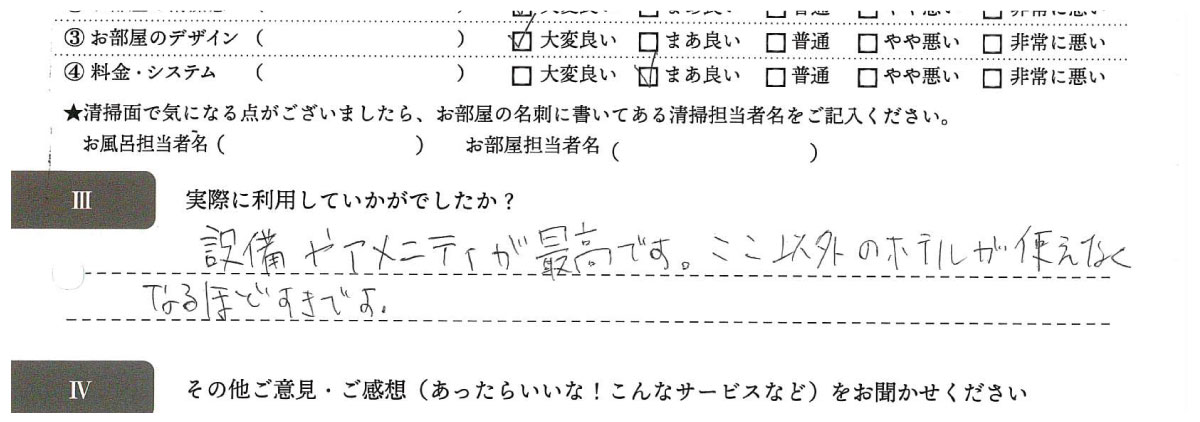 大変良い □ まあ良い □ 普通 □ やや悪い □ 非常に悪い
③ お部屋のデザイン （　　　） ☑ 大変良い □ まあ良い □ 普通 □ やや悪い □ 非常に悪い
④ 料金・システム （　　　） □ 大変良い ☑ まあ良い □ 普通 □ やや悪い □ 非常に悪い
★清掃面で気になる点がございましたら、お部屋の名刺に書いてある清掃担当者名をご記入ください。
お風呂担当者名（　　　） お部屋担当者名（　　　）
Ⅲ 実際に利用していかがでしたか？
設備やアメニティが最高です。ここ以外のホテルが使えなく
なるほどすきです。
Ⅳ その他ご意見・ご感想（あったらいいな！こんなサービスなど）をお聞かせください